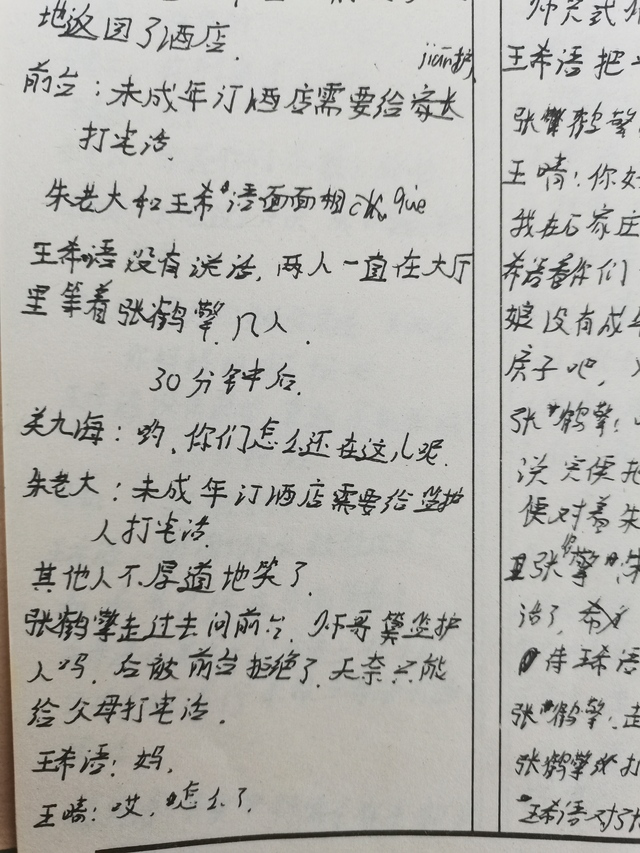 地返回了酒店.
jian护
前台：未成年订酒店需要给家长
打电话.
朱老大和王希语面面相 que
王希语没有说话，两人一直在大厅
里等着张鹤擎，几人.
30分钟后.
关九海：哟，你们怎么还在这儿呢.
朱老大：未成年订酒店需要给监护
人打电话.
其他人不厚道地笑了.
张鹤擎走过去问前台，师哥算监护
人吗，后被前台拒绝了，无奈只能
给父母打电话.
王希语：妈.
王晴：哎，怎么了.
王希语把
张鹤擎
王晴：你好
我在石家庄
希语看你们
娘没有成年
房子吧，
张鹤擎：
说完便把
便对着朱
张擎
话了，希
张鹤擎：走
张鹤擎
王希语对张